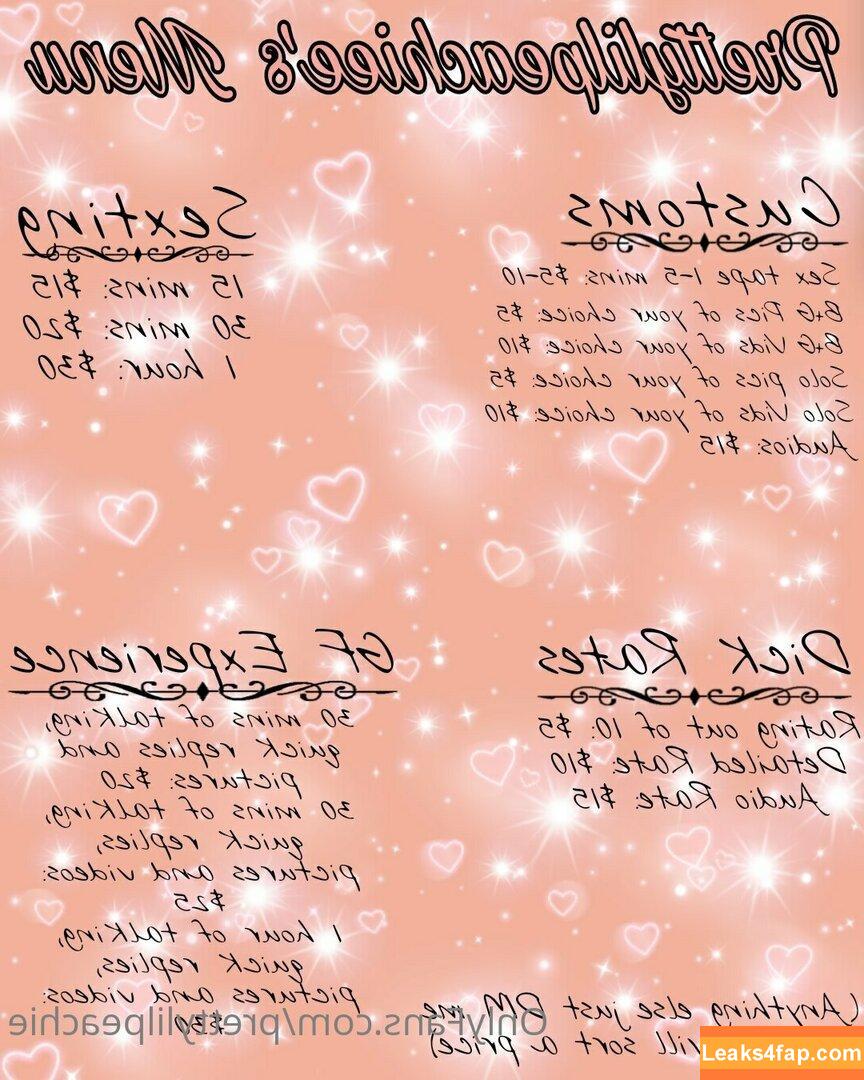 Prettylilpeachiee's Menu
Customs
Sex tape 1-5 mins: $5-10
B+G Pics of your choice: $5
B+G Vids of your choice: $10
Solo pics of your choice: $5
Solo Vids of your choice: $10
Audios: $15
Sexting
15 mins: $15
30 mins: $20
1 hour: $30
Dick Rates
Rating out of 10: $5
Detailed Rate: $10
Audio Rate: $15
GF Experience
30 mins of talking,
quick replies and
pictures: $20
30 mins of talking,
quick replies,
pictures and videos:
$25
1 hour of talking,
quick replies,
pictures and videos:
(Anything else just DM me
sort a price)
OnlyFans.com/prettylilpeachie
Leaks4fap.com